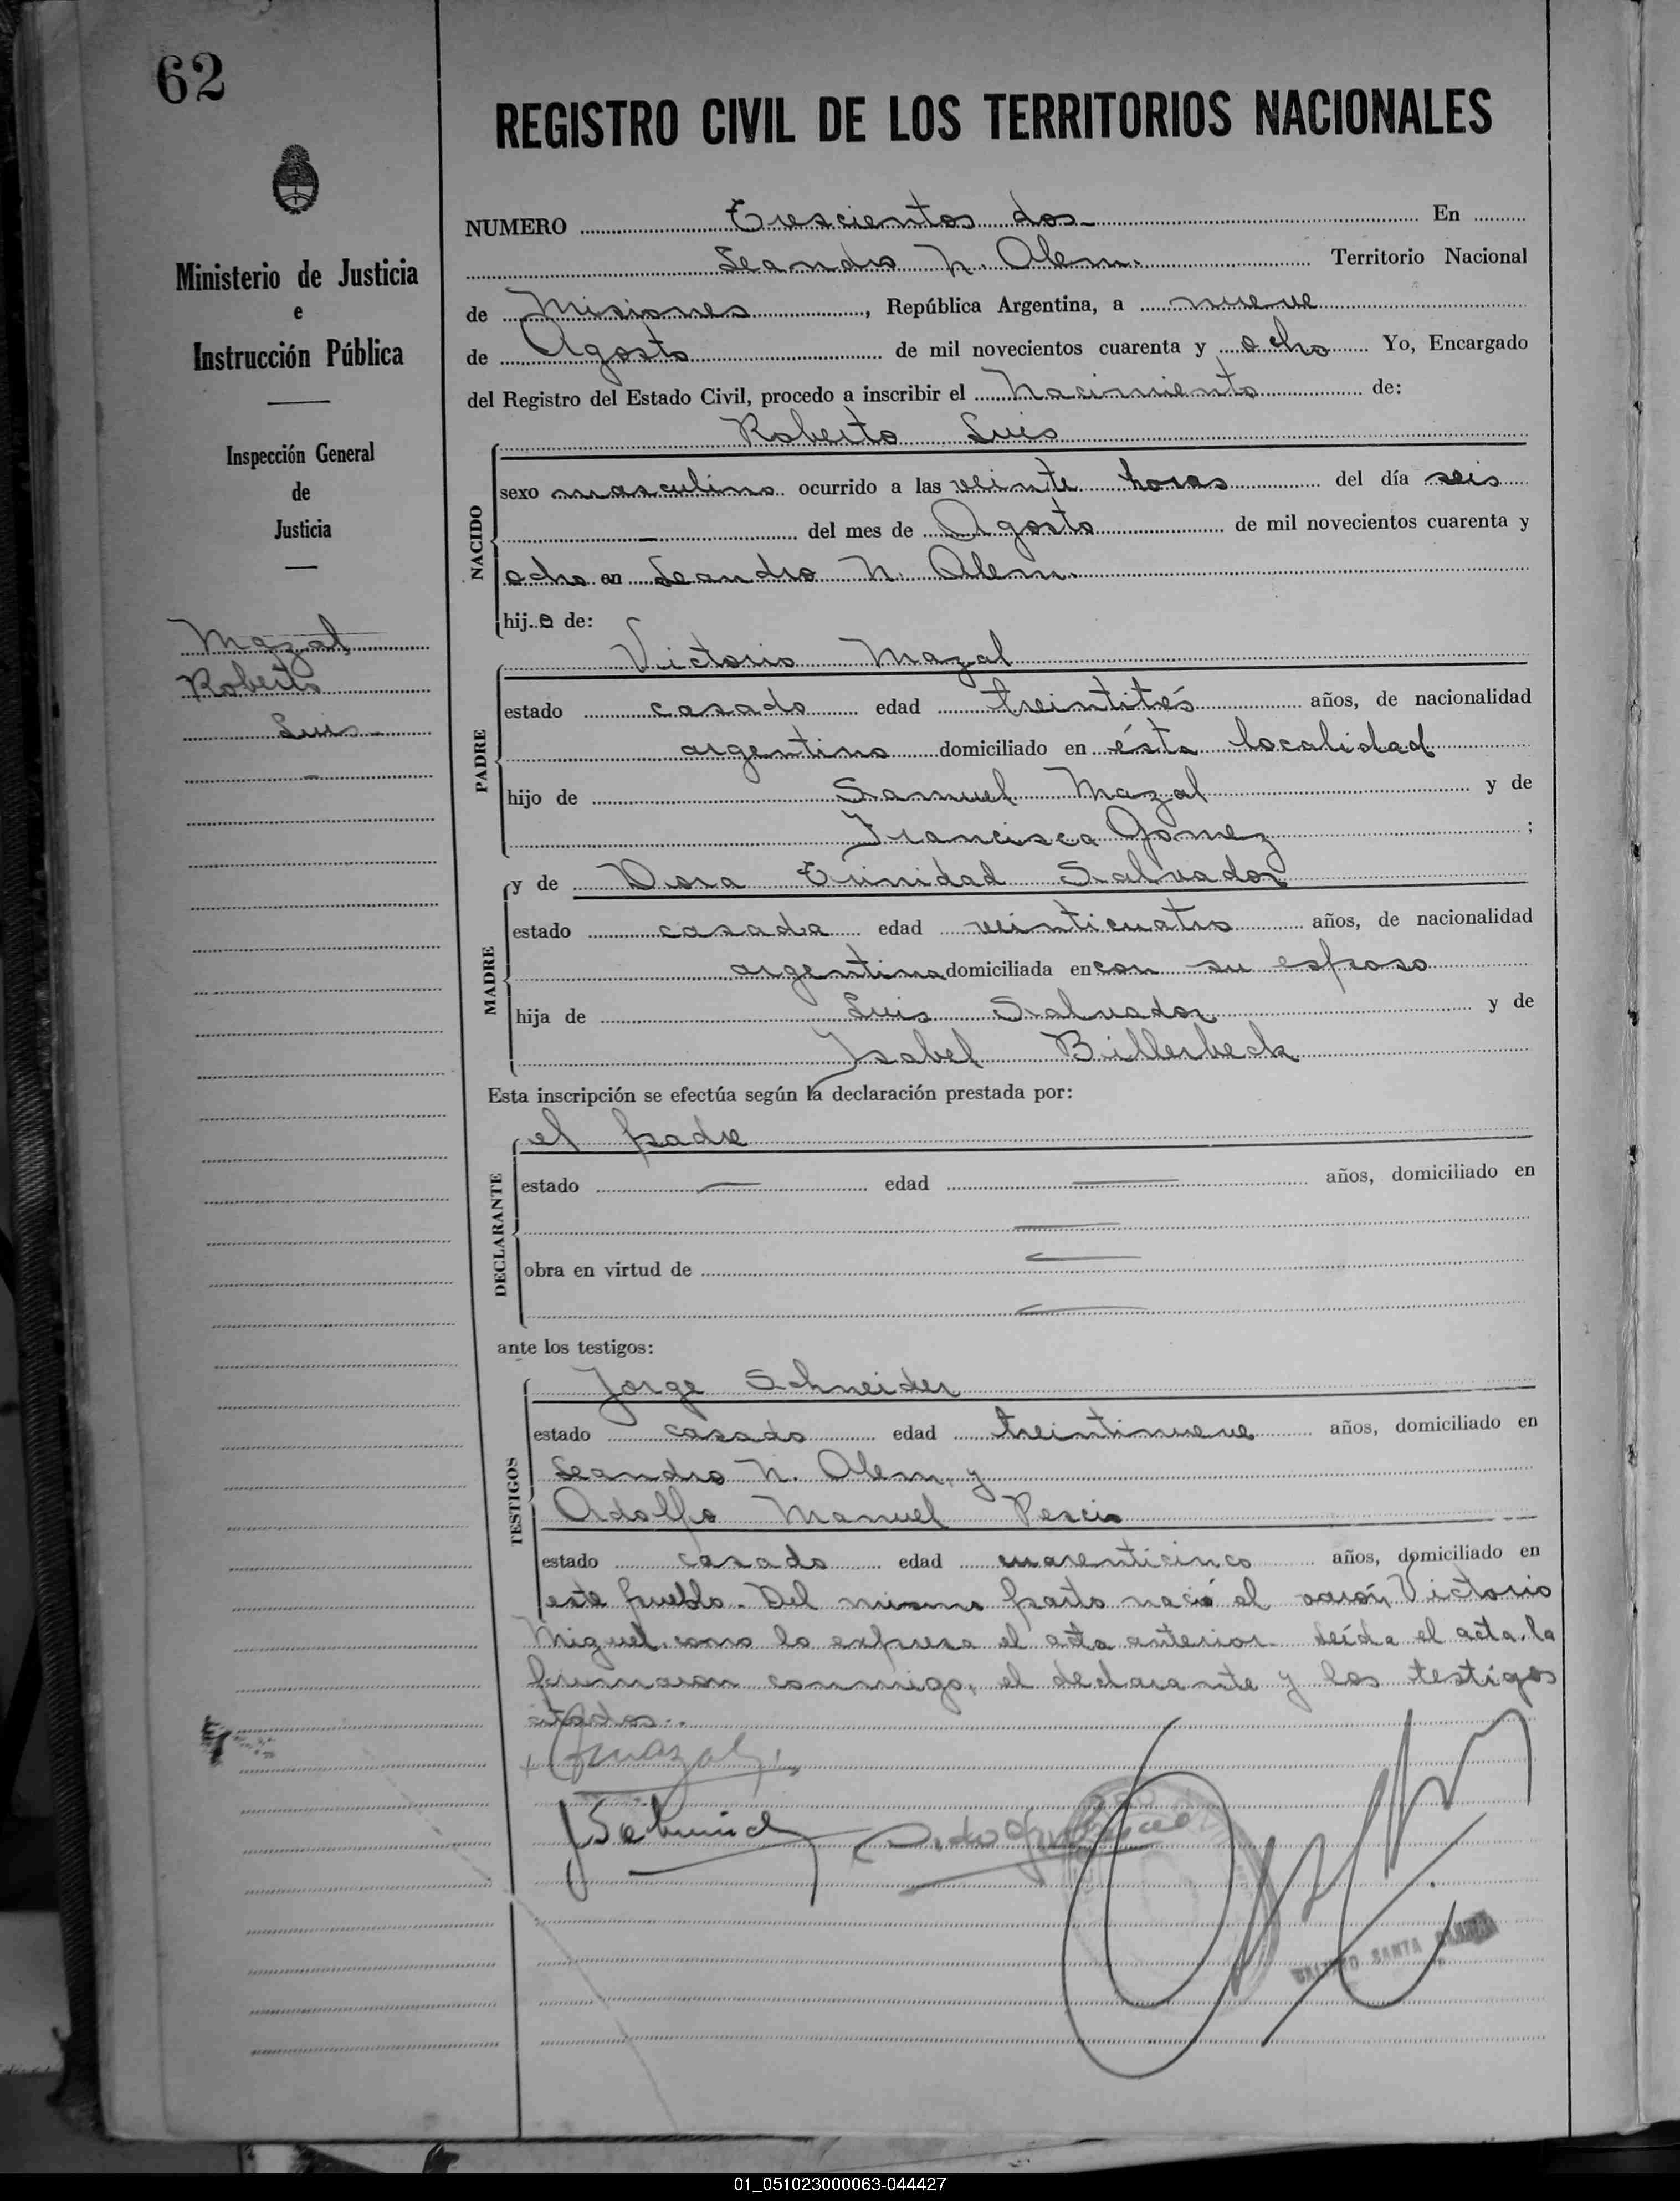 62
REGISTRO CIVIL DE LOS TERRITORIOS NACIONALES
Ministerio de Justicia
e
Instrucción Pública
Inspección General
de
Justicia
Mazal,
Roberto
Luis
NUMERO Trescientos dos En
Leandro N. Alem. Territorio Nacional
de Misiones, República Argentina, a nueve
de Agosto de mil novecientos cuarenta y ocho Yo, Encargado
del Registro del Estado Civil, procedo a inscribir el Nacimiento de:
Roberto Luis
NACIDO
sexo masculino ocurrido a las veinte horas del día seis
del mes de Agosto de mil novecientos cuarenta y
ocho en Leandro N. Alem.
hijo de:
Victorio Mazal
PADRE
estado casado edad treintitrés años, de nacionalidad
argentino domiciliado en ésta localidad
hijo de Samuel Mazal y de
Francisca Gomez ;
y de Dora Trinidad Salvador
MADRE
estado casada edad veinticuatro años, de nacionalidad
argentina domiciliada en con su esposo
hija de Luis Salvador y de
Ysabel Billerbeck
Esta inscripción se efectúa según la declaración prestada por:
el padre
DECLARANTE
estado edad años, domiciliado en
obra en virtud de
ante los testigos:
Jorge Schneider
TESTIGOS
estado casado edad treintinueve años, domiciliado en
Leandro N. Alem, y
Adolfo Manuel Pescio
estado casado edad cuarenticinco años, domiciliado en
este pueblo. Del mismo parto nació el varón, Victorio
Miguel, como lo expresa el acta anterior. Leída el acta, la
firmaron conmigo, el declarante y los testigos
citados.
Mazal
01_051023000063-044427